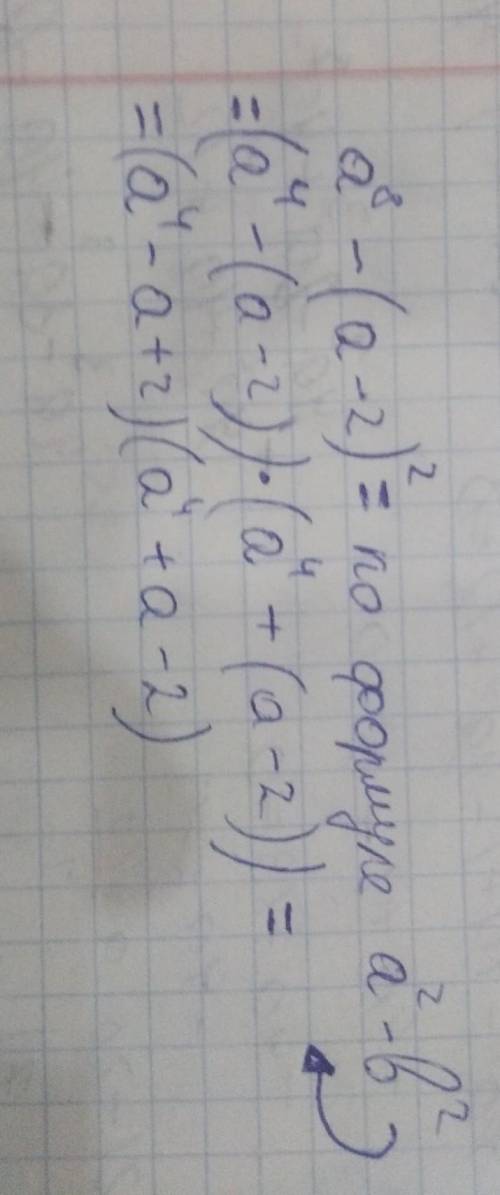 a⁸ - (a - 2)² = по формуле a² - b²
= (a⁴ - (a - 2)) · (a⁴ + (a - 2)) =
= (a⁴ - a + 2)(a⁴ + a - 2)